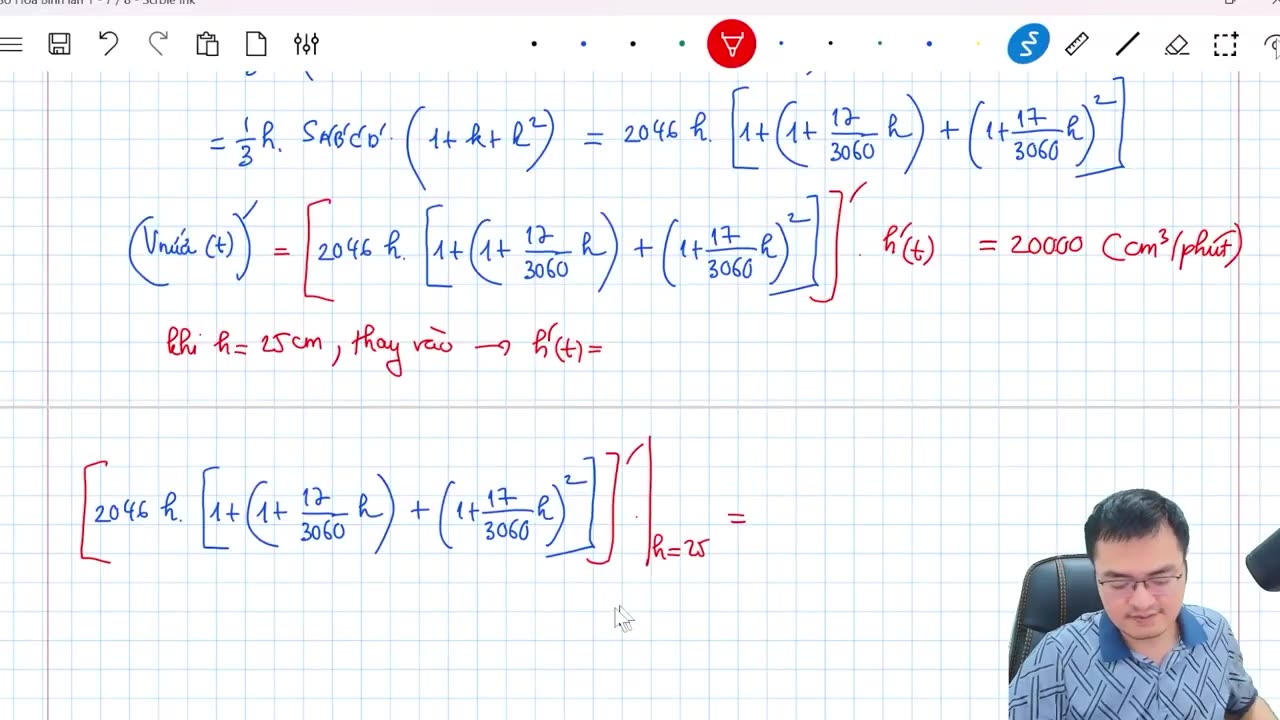 = 1/3 h. SA'B'C'D'. (1+k+k²) = 2046 h. [1+(1+ 17/3060 h) + (1+ 17/3060 h)²]
(Vnước(t))' = [2046 h. [1+(1+ 17/3060 h) + (1+ 17/3060 h)²]]'. h'(t) = 20000 (cm³/phút)
khi h= 25cm, thay vào → h'(t)=
[2046 h. [1+(1+ 17/3060 h) + (1+ 17/3060 h)²]]'.|h=25 =